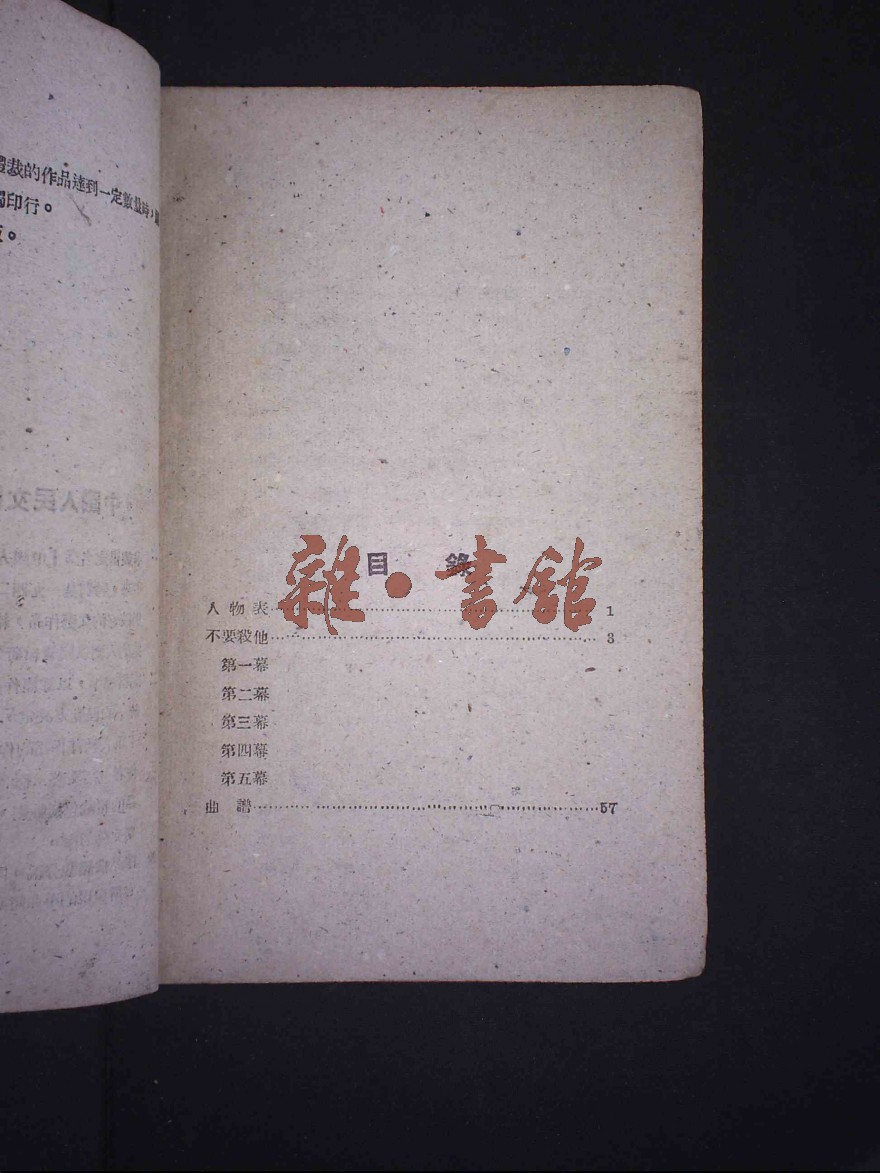 體裁的作品達到一定數量時，
獨印行。
。
目錄
雜·書館
人物表 1
不要殺他 3
第一幕
第二幕
第三幕
第四幕
第五幕
曲譜 57